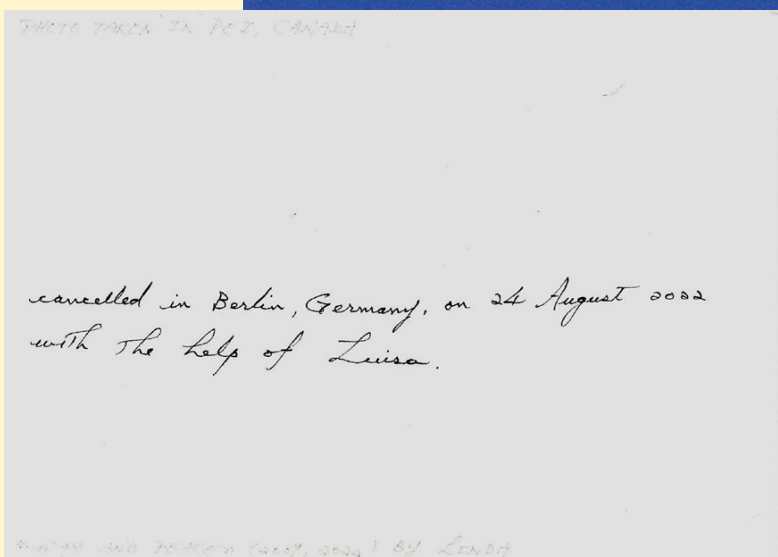 PHOTO TAKEN IN PEI, CANADA
cancelled in Berlin, Germany, on 24 August 2022
with the help of Luisa.
AND (2009, 2022) BY LINDA